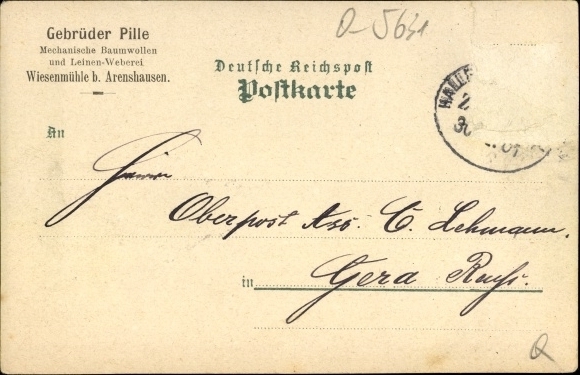 O-5631
Gebrüder Pille
Mechanische Baumwollen
und Leinen-Weberei
Wiesenmühle b. Arenshausen.
Deutsche Reichspost
Postkarte
An
Herrn
Oberpost Ass. C. Lehmann.
in Gera Reuß.
Q